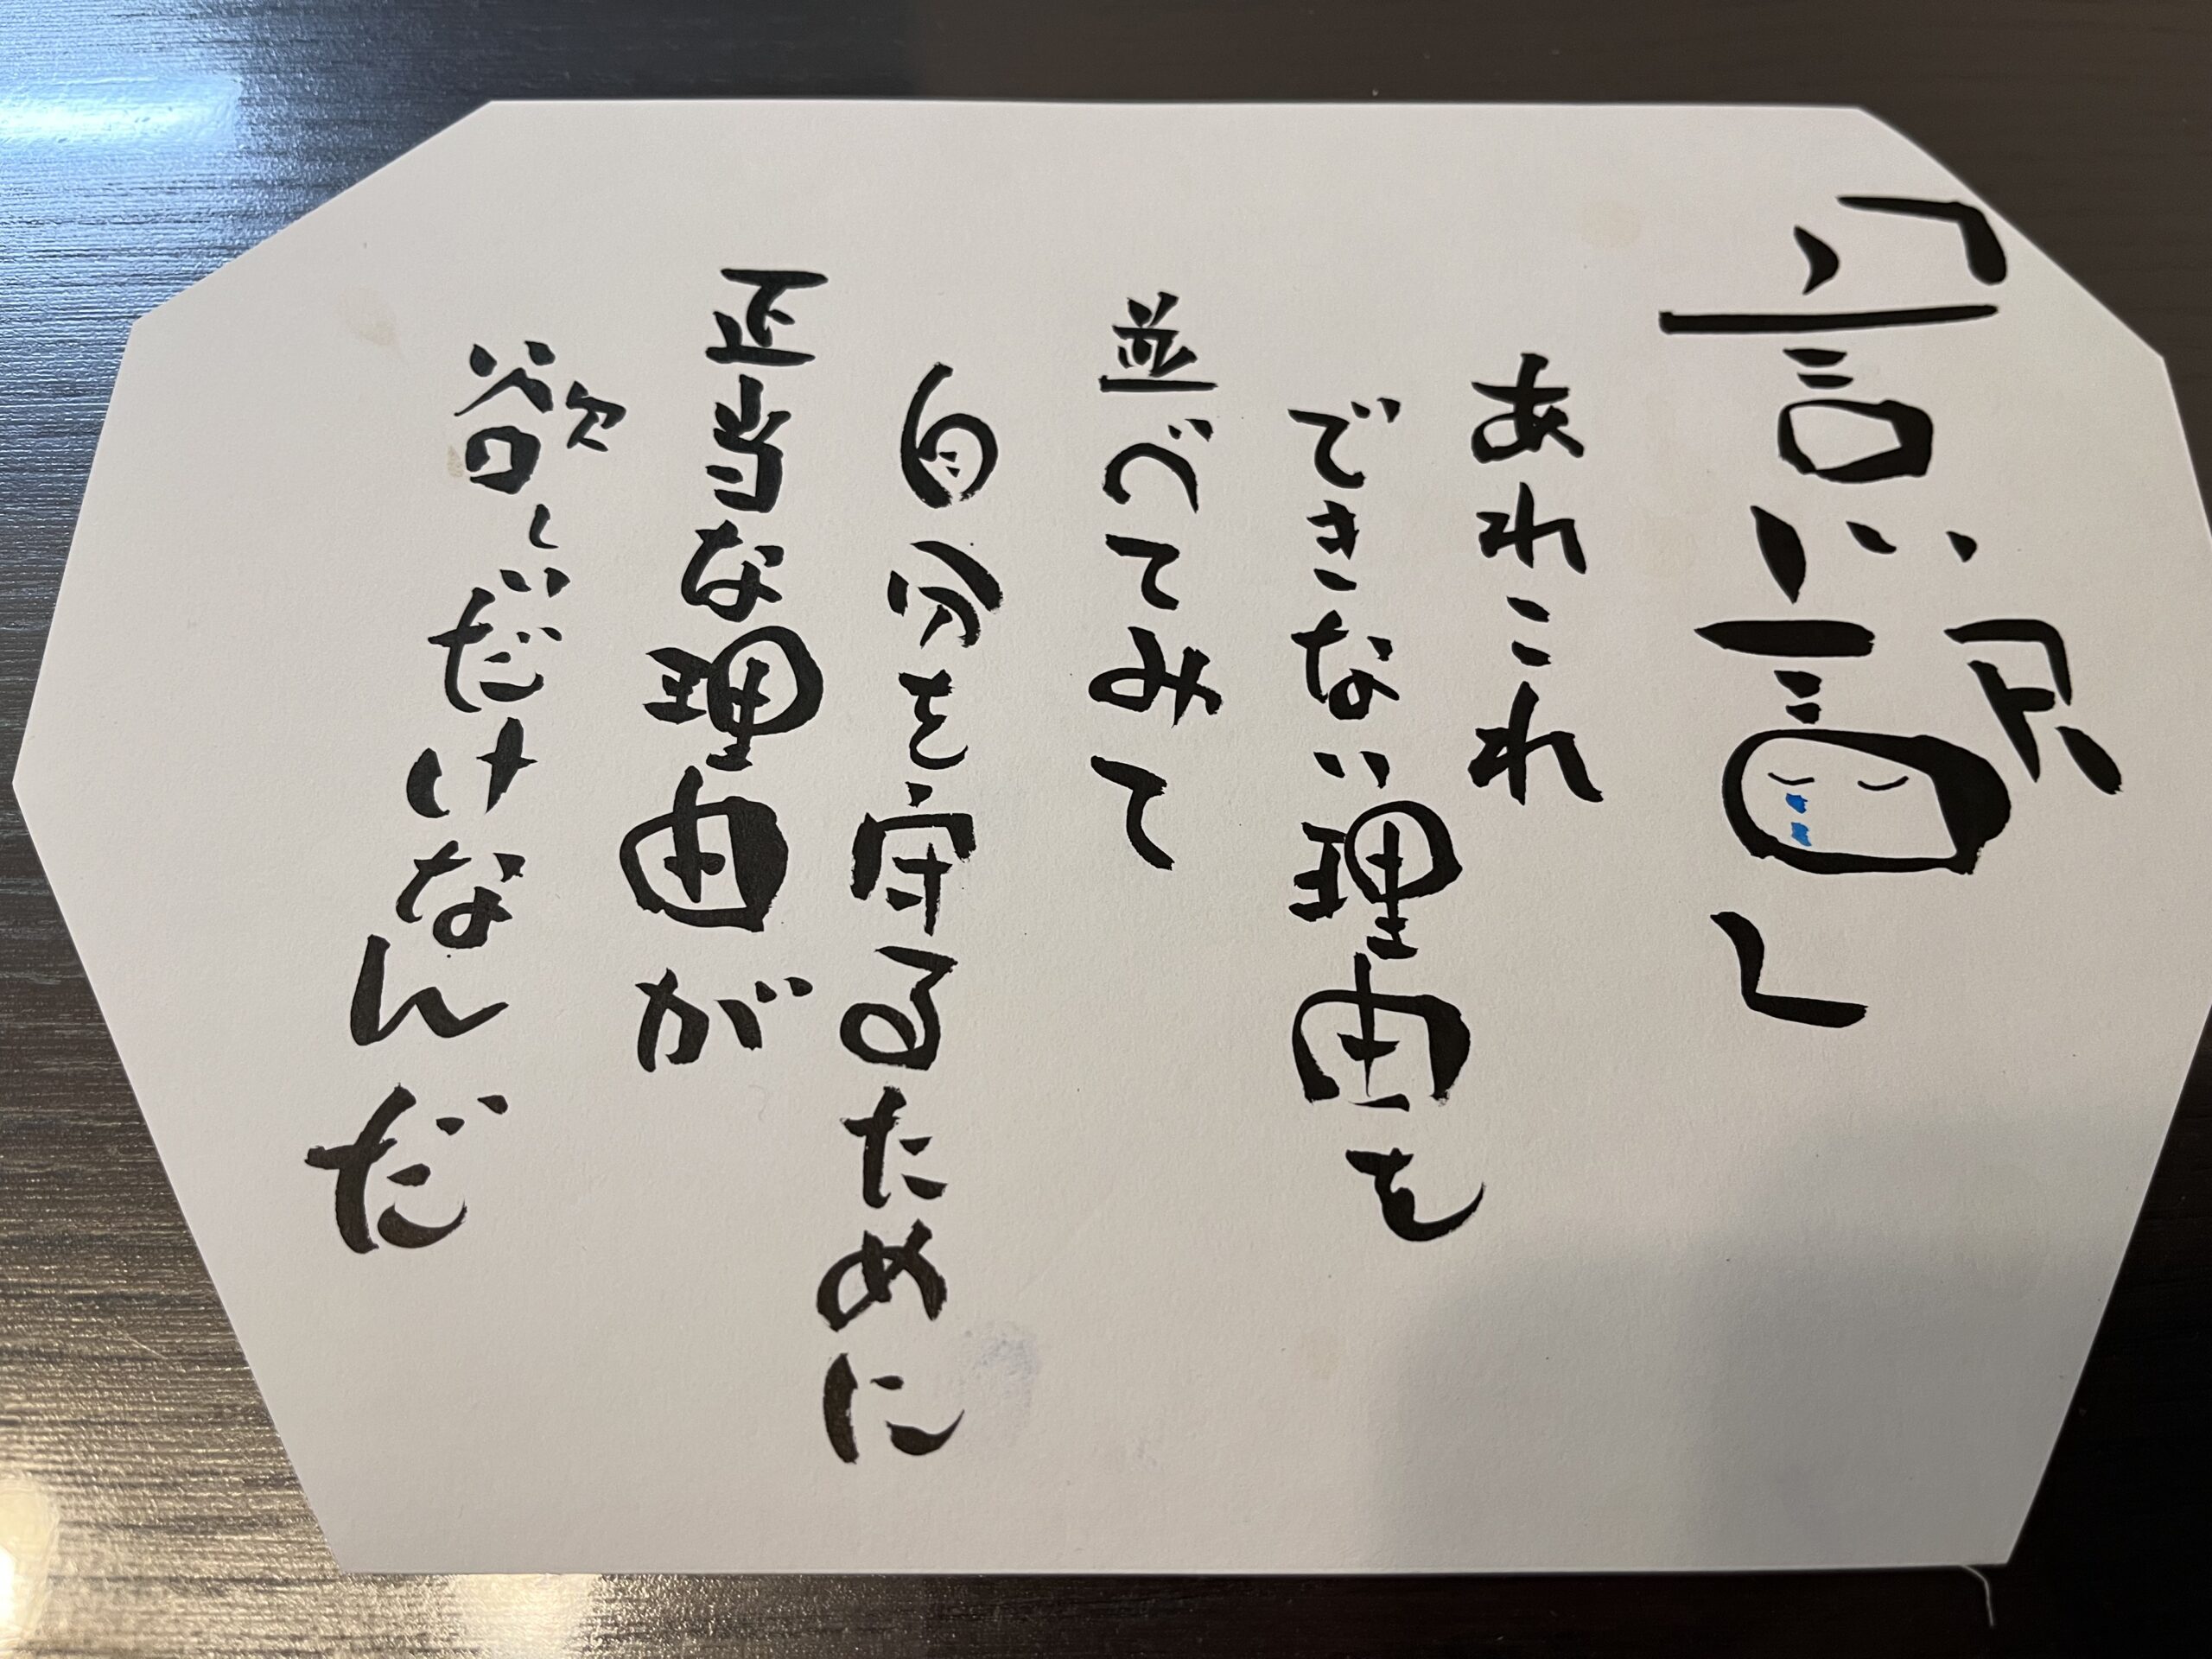 「言い訳」
あれこれ
できない理由を
並べてみて
自分を守るために
正当な理由が
欲しいだけなんだ